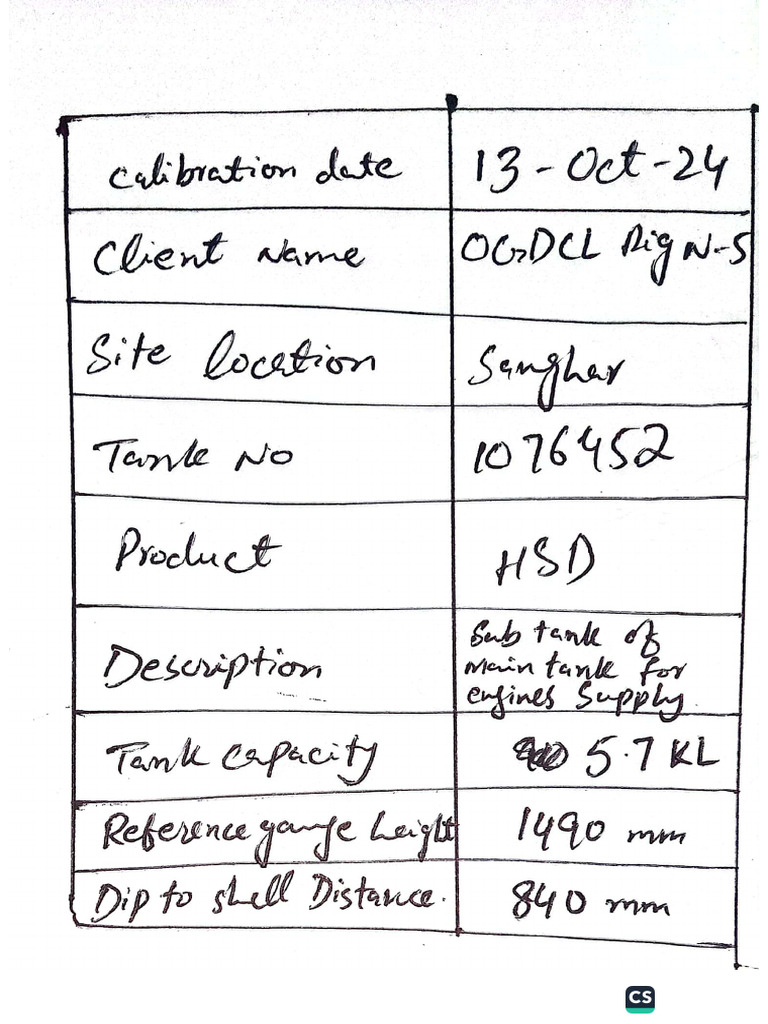 Calibration date 13-Oct-24
Client Name OGDCL Rig N-5
Site location Sanghar
Tank No 1076452
Product HSD
Description Sub tank of
main tank for
engines supply.
Tank capacity 5.7 KL
Reference gauge height 1490 mm
Dip to shell Distance. 840 mm
CS